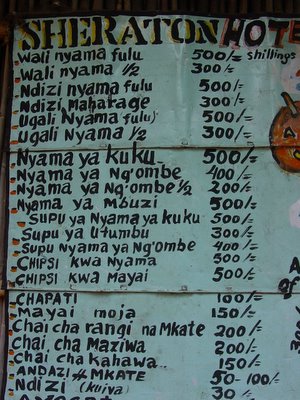 SHERATON HOTE
Wali nyama fulu 500/= shillings
Wali nyama 1/2 300/=
Ndizi nyama fulu 500/=
Ndizi Maharage 300/=
Ugali Nyama fulu 500/=
Ugali Nyama 1/2 300/=
Nyama ya kuku 500/=
Nyama ya Ng'ombe 400/=
Nyama ya Ng'ombe 1/2 200/=
Nyama ya Mbuzi 500/=
Supu ya Nyama ya kuku 500/=
Supu ya Utumbu 300/=
Supu Nyama ya Ng'ombe 400/=
CHIPSI kwa Nyama 500/=
CHIPSI kwa Mayai 500/=
CHAPATI 100/=
Mayai moja 150/=
Chai cha rangi na Mkate 200/=
Chai cha Maziwa 200/=
Chai cha kahawa 150/=
ANDAZI # MKATE 50-100/=
Ndizi (kuiva) 30/=